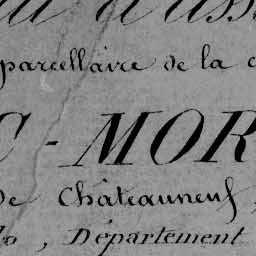 parcellaire de la c
C-MOR
De Châteauneuf,
lo, Département